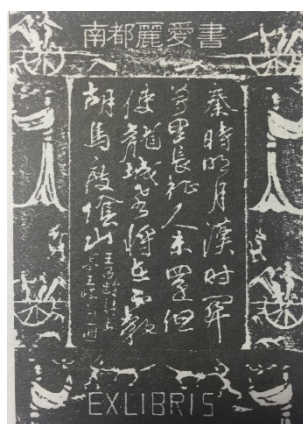 南都麗愛書
秦時明月漢时関
萬里長征人未還但
使龍城飛將在不教
胡馬度陰山
王昌齡詩
EXLIBRIS